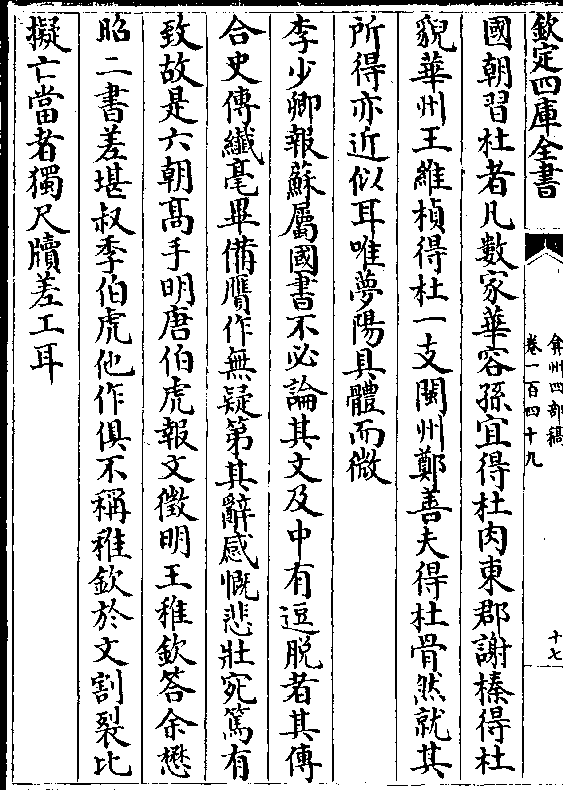 欽定四庫全書
弇州四部稿
卷一百四十九
十七
國朝習杜者凡數家華容孫宜得杜肉東郡謝榛得杜
貌華州王維楨得杜一支閩州鄭善夫得杜骨然就其
所得亦近似耳唯夢陽具體而微
李少卿報蘇屬國書不必論其文及中有逗脱者其傳
合史傳纖毫畢備贋作無疑第其辭感慨悲壯宛篤有
致故是六朝髙手明唐伯虎報文徵明王稚欽答余懋
昭二書差堪叔季伯虎他作俱不稱稚欽於文割裂比
擬亡當者獨尺牘差工耳